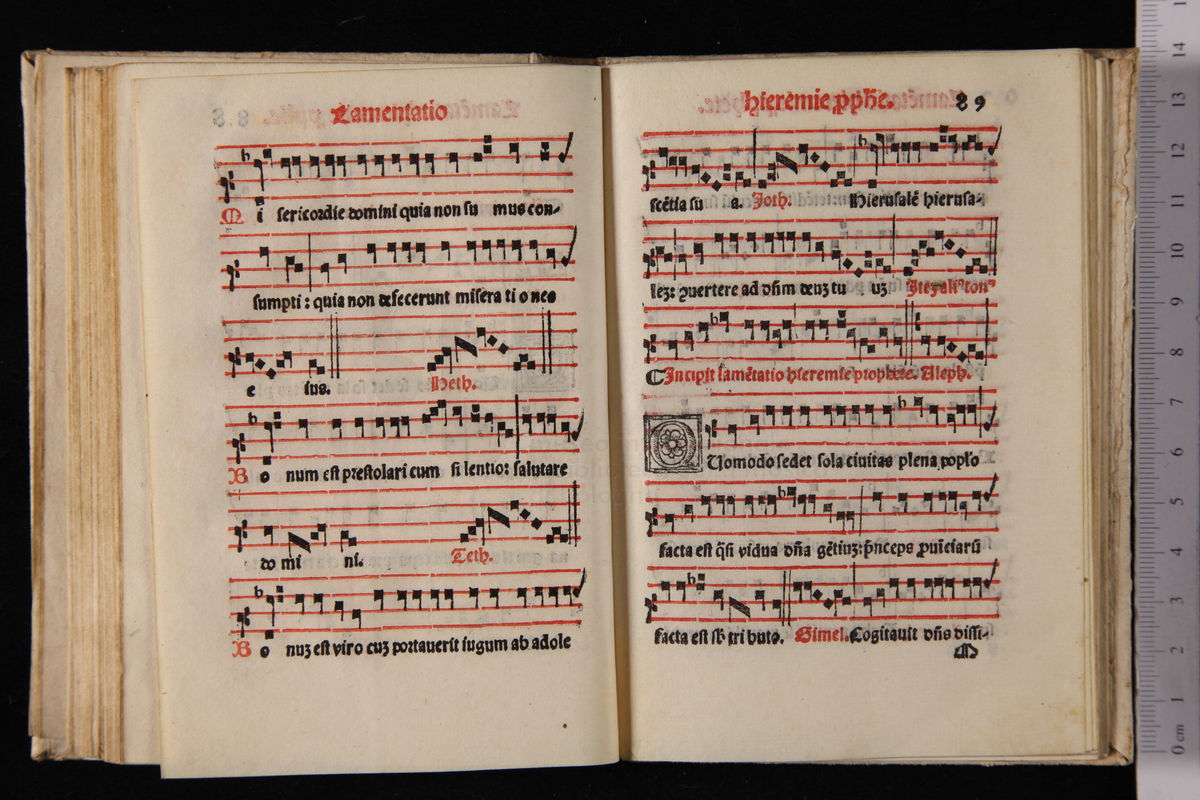 Lamentatio
Mi sericordie domini quia non su mus con-
sumpti: quia non defecerunt misera ti o nes
e ius. Heth.
Bo num est prestolari cum si lentio: salutare
do mi ni. Teth.
Bo nuz est viro cuz portauerit iugum ab adole
hieremie pphe. 89
scẽtia su a. Joth. Hierusalẽ hierusa-
lez: ꝯuertere ad dñm deuz tu uz.
Incipit lamẽtatio hieremie prophete. Aleph.
QUomodo sedet sola ciuitas plena poplo
facta est q̃si vidua dña gẽtiuz: p̃nceps ꝓuĩciarũ
facta est sb̃ tri buto. Gimel. Cogitauit dñs dissi-
M
0 cm 1 2 3 4 5 6 7 8 9 10 11 12 13 14